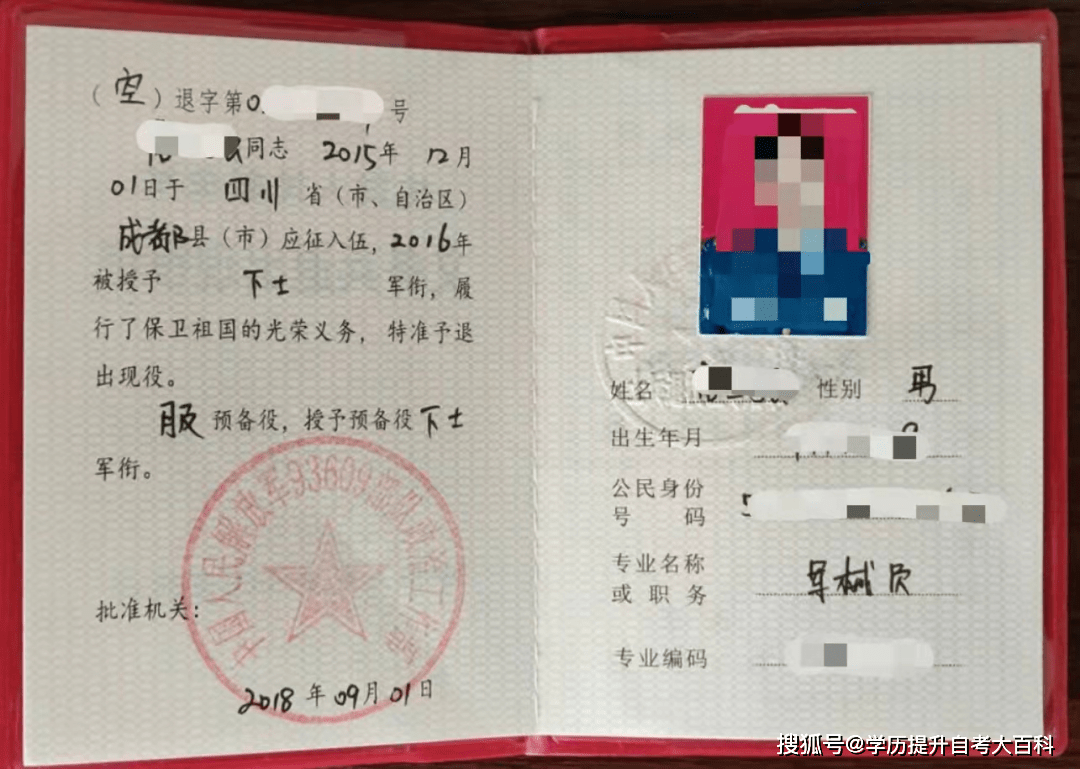 （空）退字第0 号
同志 2015年 12月
01日于 四川 省（市、自治区）
成都县（市）应征入伍，2016年
被授予 下士 军衔，履
行了保卫祖国的光荣义务，特准予退
出现役。
服 预备役，授予预备役 下士
军衔。
中国人民解放军93609部队政治工作部
批准机关：
2018年09月01日
姓名 性别 男
出生年月
公民身份
号 码
专业名称
或 职 务 军械员
专业编码
搜狐号@学历提升自考大百科